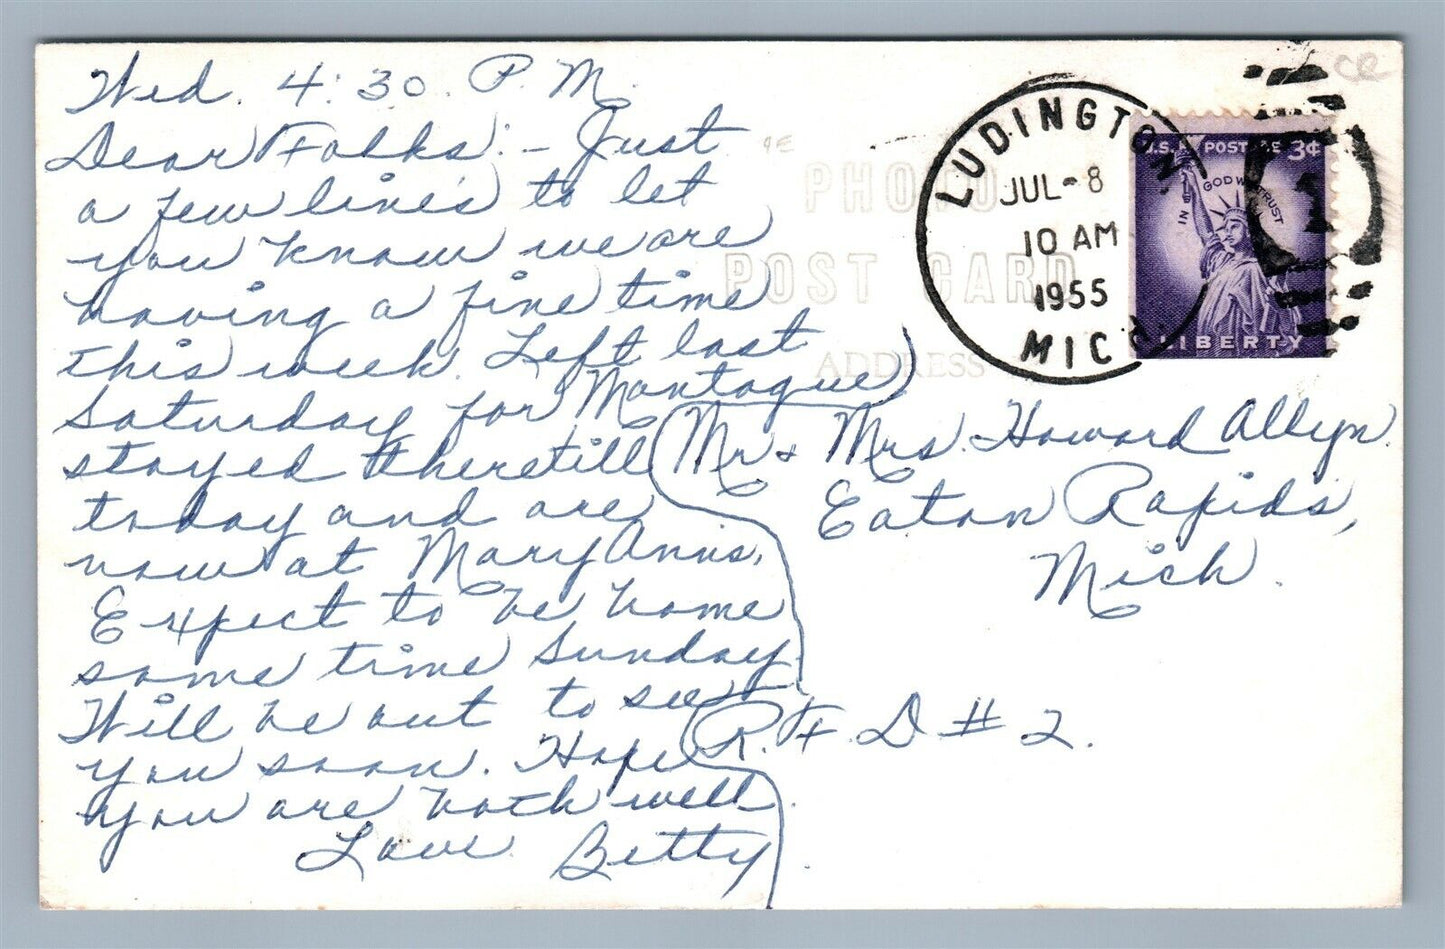 Wed. 4:30 P.M.
Dear Folks: - Just
a few lines to let
you know we are
having a fine time
this week. Left last
Saturday for Montague
stayed there till
today and are
now at Mary Anns.
Expect to be home
some time Sunday.
Will be out to see
you soon. Hope
you are both well.
Love Betty
PHOTO
POST CARD
ADDRESS
LUDINGTON
JUL-8
10 AM
1955
MICH
U.S. POSTAGE 3¢
IN GOD WE TRUST
LIBERTY
1
CE
Mr & Mrs. Howard Allyn.
Eaton Rapids,
Mich.
R.F.D # 2.